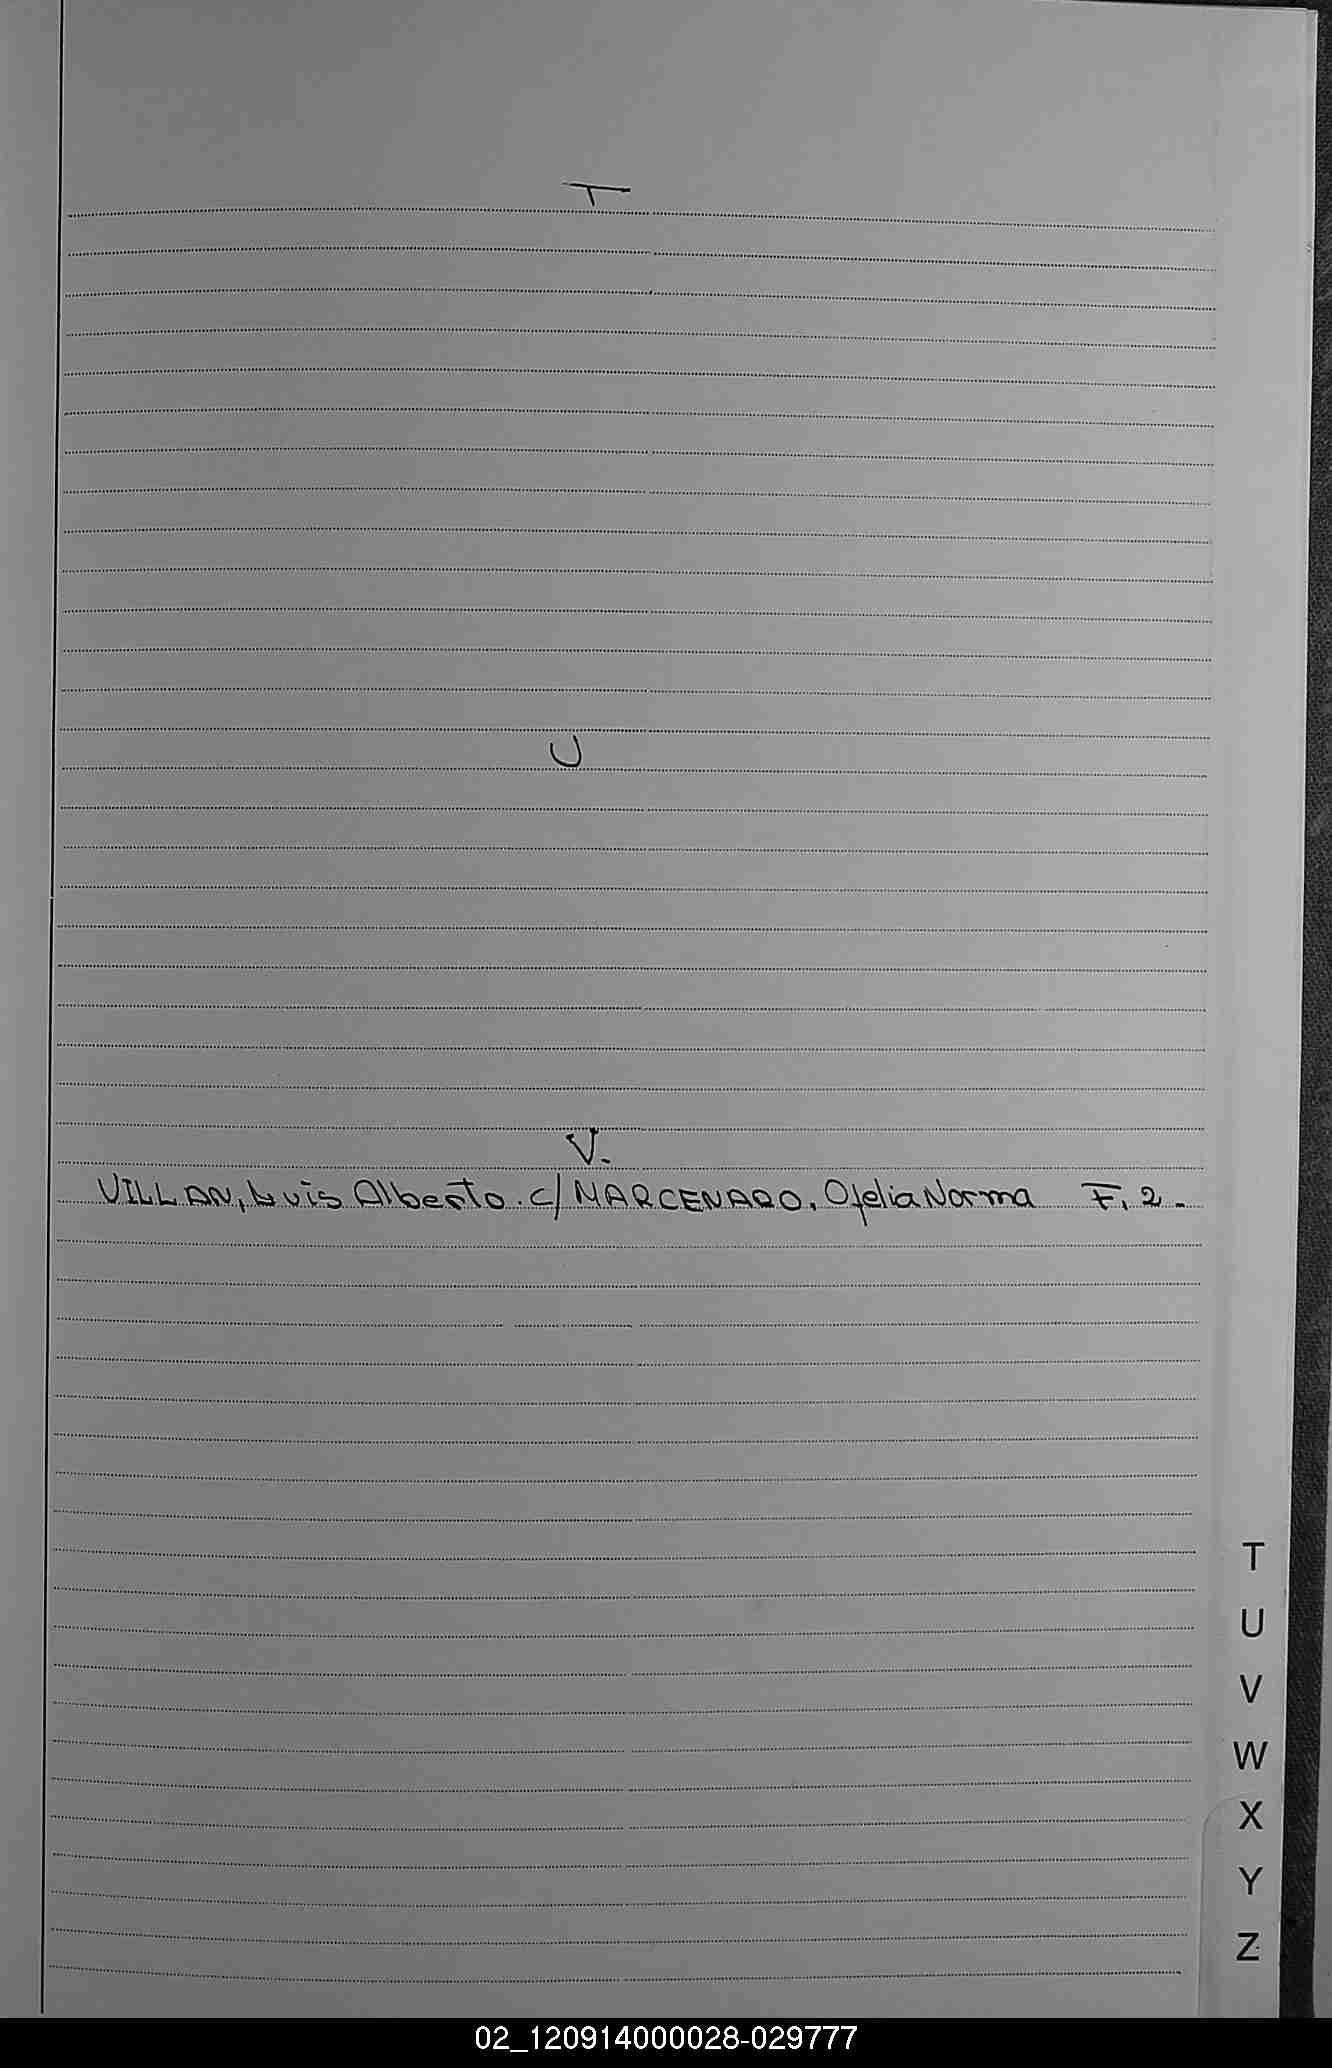 T
U
V.
VILLAN, Luis Alberto. c/ MARCENARO. Ofelia Norma F. 2.-
T
U
V
W
X
Y
Z
02_120914000028-029777